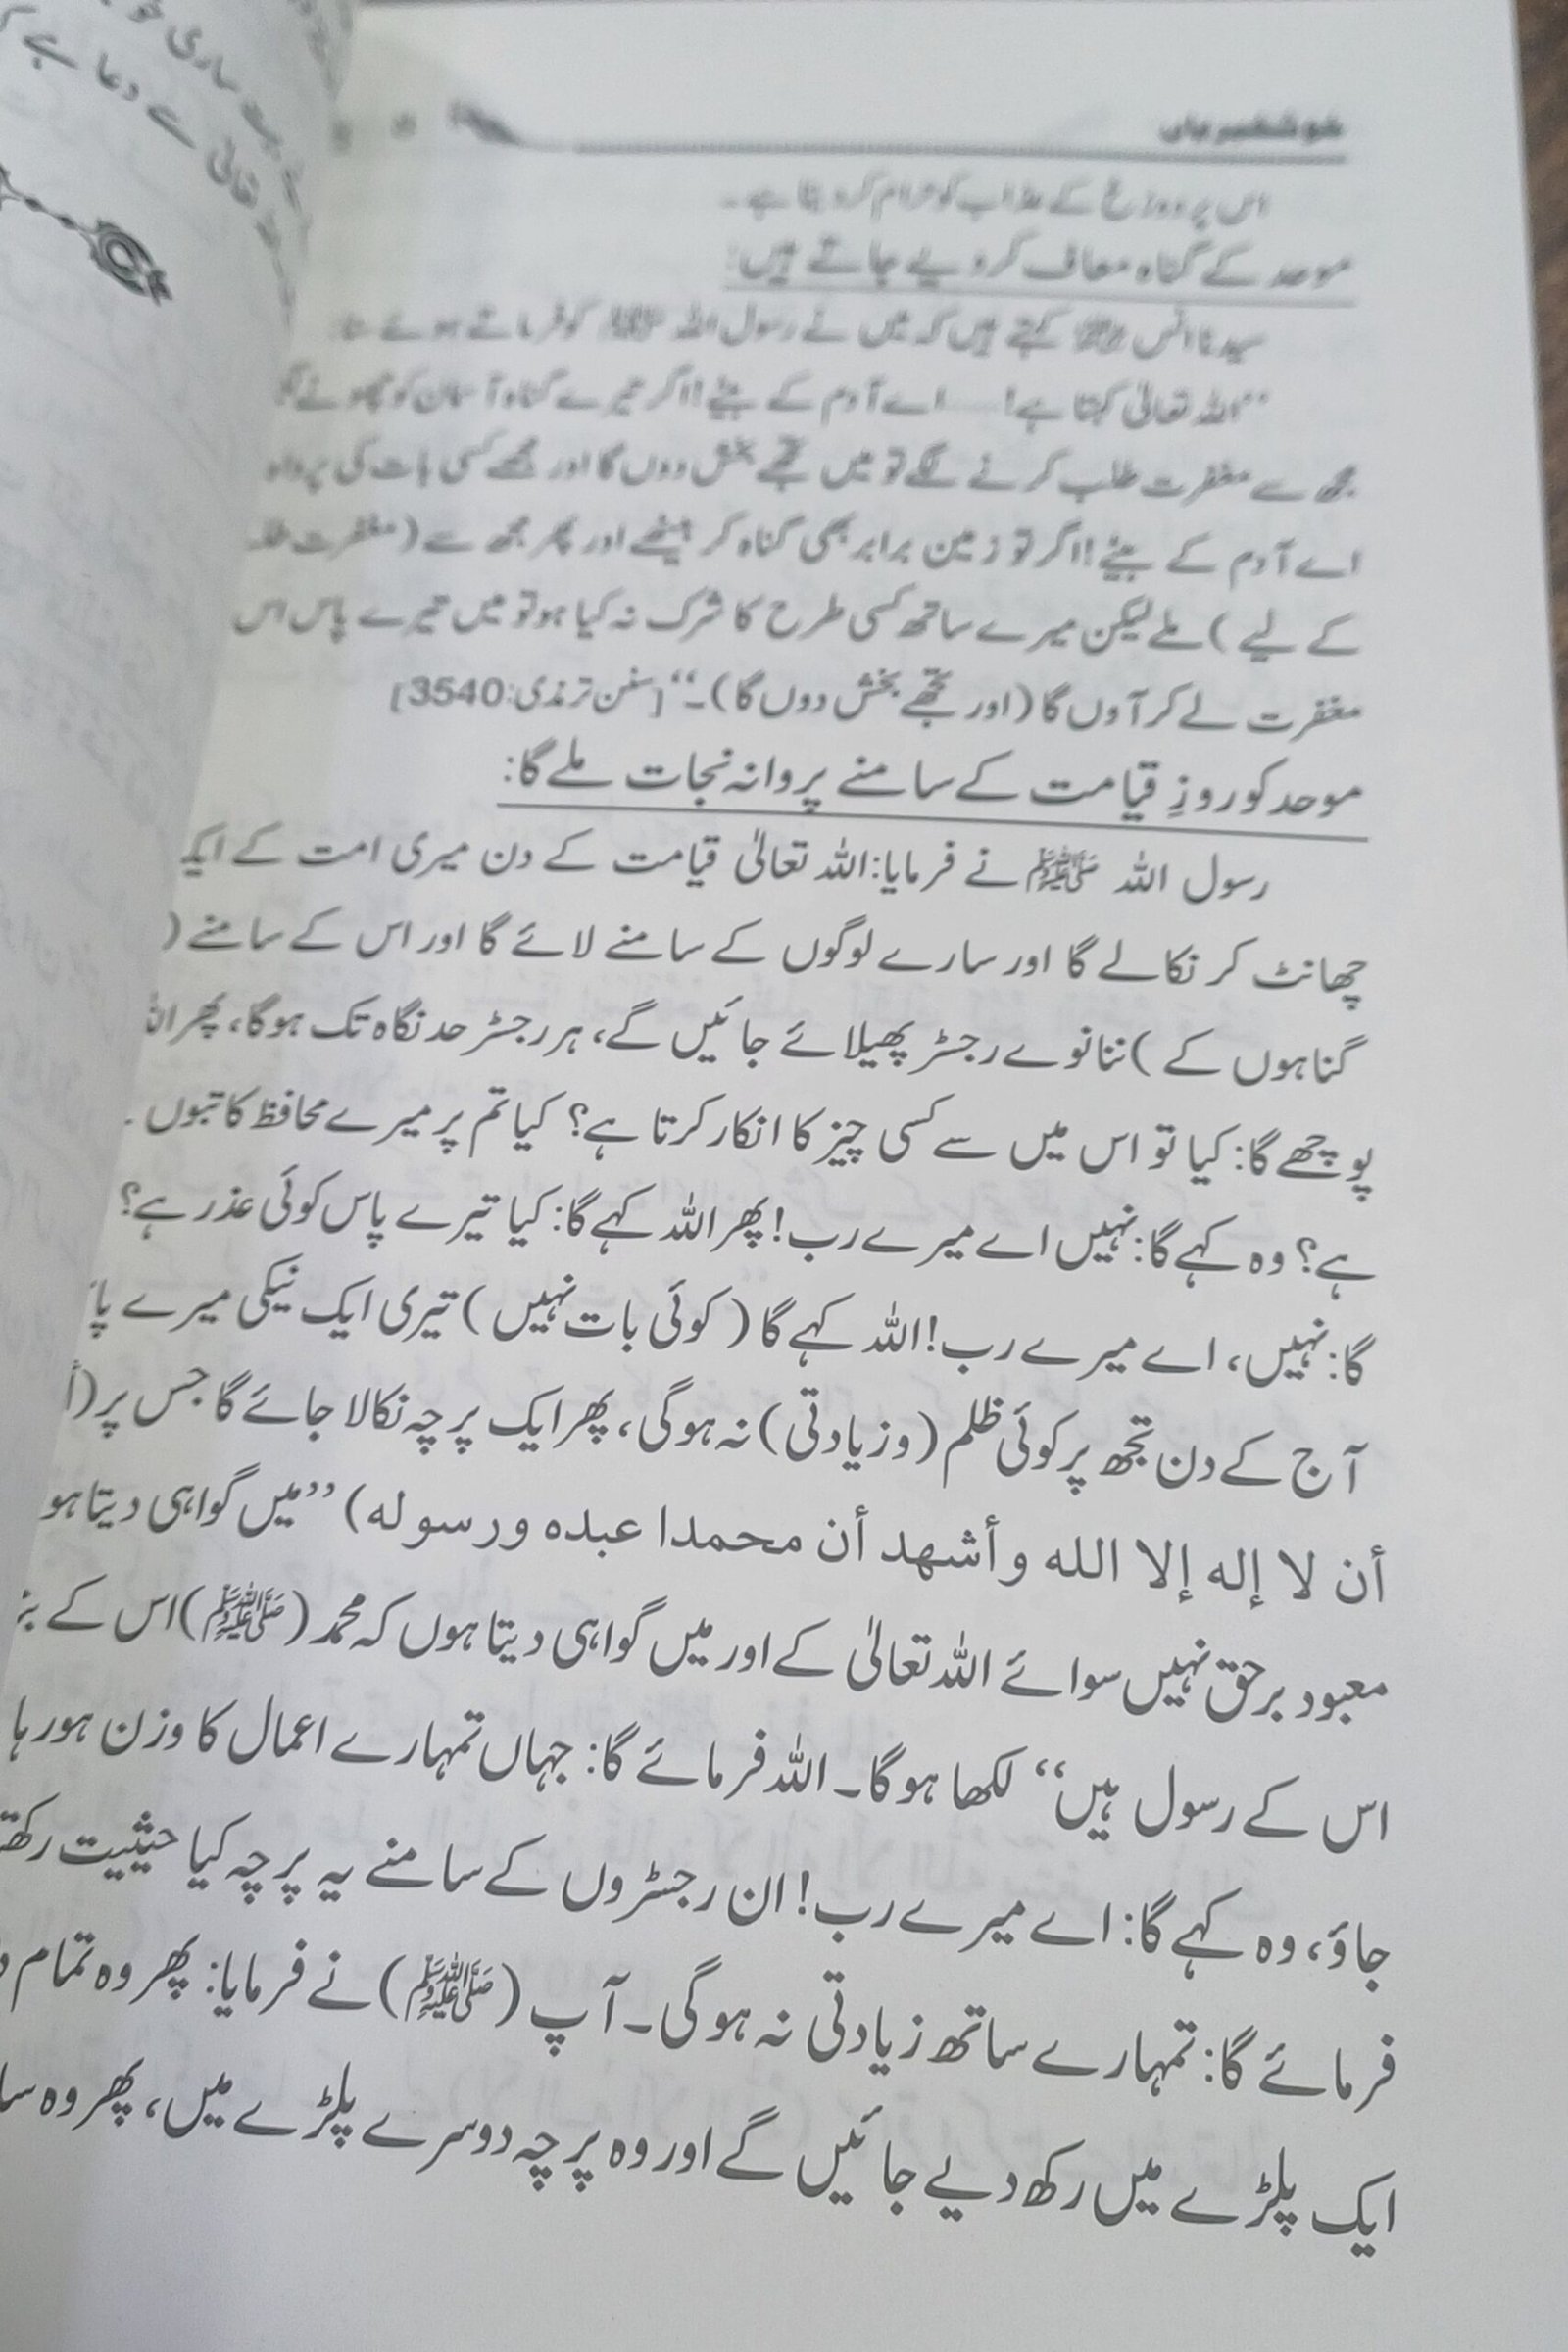 خوشخبریاں
اس پر دوزخ کے عذاب کو حرام کر دیتا ہے۔
موحد کے گناہ معاف کر دیے جاتے ہیں:
سیدنا انس رضی اللہ عنہ کہتے ہیں کہ میں نے رسول اللہ ﷺ کو فرماتے ہوئے سنا:
”اللہ تعالیٰ کہتا ہے! ..... اے آدم کے بیٹے! اگر تیرے گناہ آسمان کو چھونے
مجھ سے مغفرت طلب کرنے لگے تو میں تجھے بخش دوں گا اور مجھے کسی بات کی پرواہ
اے آدم کے بیٹے! اگر تو زمین برابر بھی گناہ کر بیٹھے اور پھر مجھ سے (مغفرت
کے لیے) ملے لیکن میرے ساتھ کسی طرح کا شرک نہ کیا ہو تو میں تیرے پاس اس
مغفرت لے کر آوں گا (اور تجھے بخش دوں گا)۔“ [سنن ترمذی: 3540]
موحد کو روزِ قیامت کے سامنے پروانہ نجات ملے گا:
رسول اللہ ﷺ نے فرمایا: اللہ تعالیٰ قیامت کے دن میری امت کے ایک
چھانٹ کر نکالے گا اور سارے لوگوں کے سامنے لائے گا اور اس کے سامنے (
گناہوں کے) ننانوے رجسٹر پھیلائے جائیں گے، ہر رجسٹر حد نگاہ تک ہوگا، پھر
پوچھے گا: کیا تو اس میں سے کسی چیز کا انکار کرتا ہے؟ کیا تم پر میرے محافظ کاتبوں
ہے؟ وہ کہے گا: نہیں اے میرے رب! پھر اللہ کہے گا: کیا تیرے پاس کوئی عذر ہے؟
گا: نہیں، اے میرے رب! اللہ کہے گا (کوئی بات نہیں) تیری ایک نیکی میرے
آج کے دن تجھ پر کوئی ظلم (و زیادتی) نہ ہوگی، پھر ایک پرچہ نکالا جائے گا جس پر (
أن لا إله إلا الله وأشهد أن محمدا عبده ورسوله) ”میں گواہی دیتا
معبود برحق نہیں سوائے اللہ تعالیٰ کے اور میں گواہی دیتا ہوں کہ محمد (ﷺ) اس کے
اس کے رسول ہیں“ لکھا ہوگا۔ اللہ فرمائے گا: جہاں تمہارے اعمال کا وزن ہو رہا
جاؤ، وہ کہے گا: اے میرے رب! ان رجسٹروں کے سامنے یہ پرچہ کیا حیثیت
فرمائے گا: تمہارے ساتھ زیادتی نہ ہوگی۔ آپ (ﷺ) نے فرمایا: پھر وہ تمام
ایک پلڑے میں رکھ دیے جائیں گے اور وہ پرچہ دوسرے پلڑے میں، پھر وہ